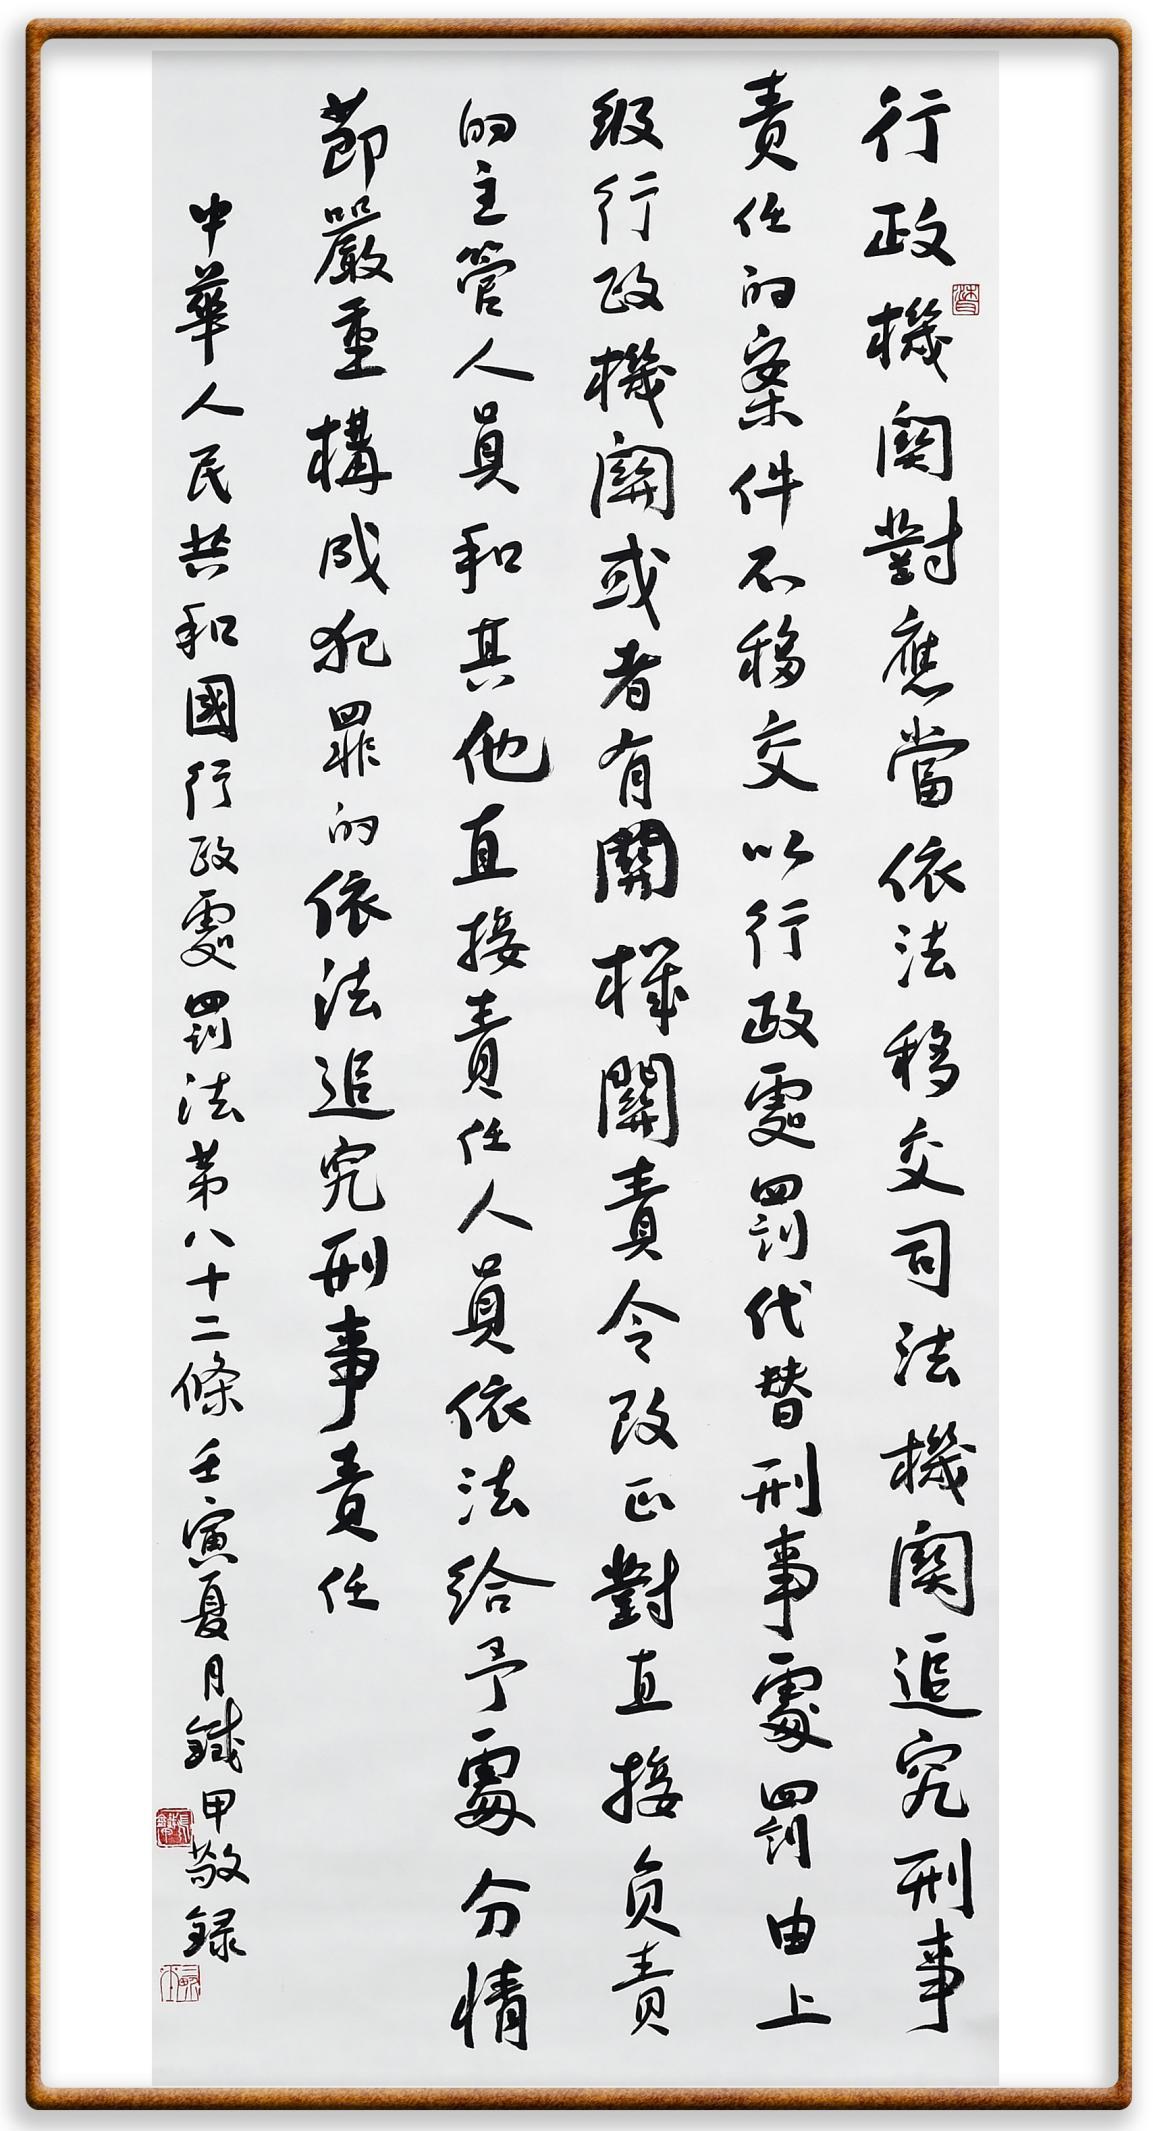 行政機関對應當依法移交司法機関追究刑事
責任的案件不移交以行政處罰代替刑事處罰由上
級行政機關或者有關機關責令改正對直接负責
的主管人員和其他直接責任人員依法給予處分情
節嚴重構成犯罪的依法追究刑事責任
中華人民共和國行政處罰法第八十二條壬寅夏月鐵甲敬録